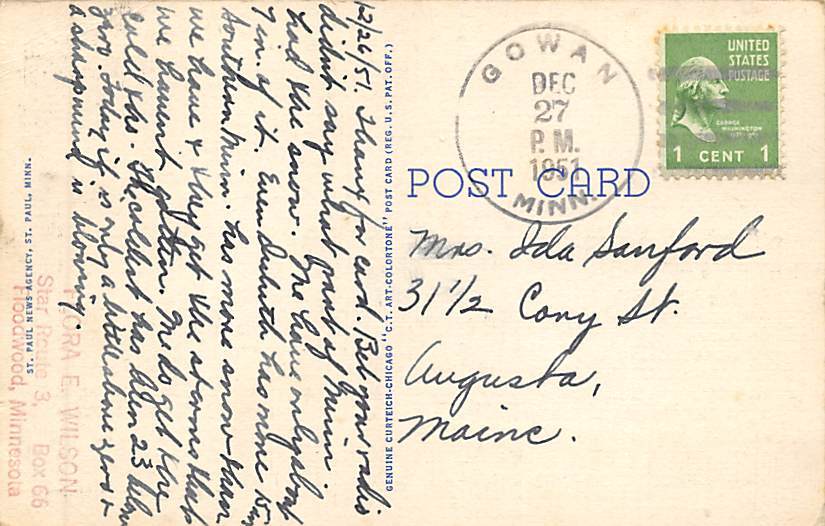 12/26/51. Thanks for card. But your radio
didn't say what part of Minn
had the snow. We have only about
7 in. of it. Even Duluth has more &
Southern Minn. has more snow than
we have & they get the storms that
we havent gotten. We do get the
cold tho. The coldest has been 23 below
zero. Today it is only a little above zero &
a sharp wind is blowing.
FLORA E. WILSON
Star Route 3, Box 66
Floodwood, Minnesota
ST. PAUL NEWS AGENCY, ST. PAUL, MINN.
GENUINE CURTEICH-CHICAGO "C.T. ART-COLORTONE" POST CARD (REG. U.S. PAT. OFF.)
POST CARD
GOWAN
DEC
27
P.M.
1951
MINN.
UNITED
STATES
POSTAGE
GEORGE
WASHINGTON
1 CENT 1
Mrs. Ida Sanford
31 1/2 Cony St.
Augusta,
Maine.